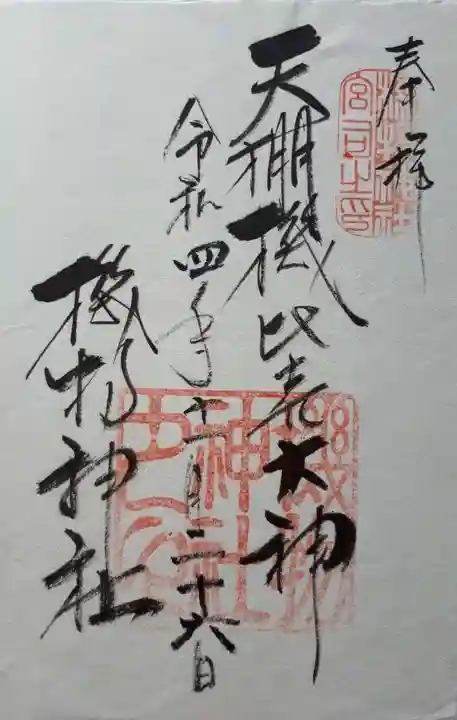 奉拝
天棚機比売大神
令和四年十一月二十六日
機物神社
宮司之印